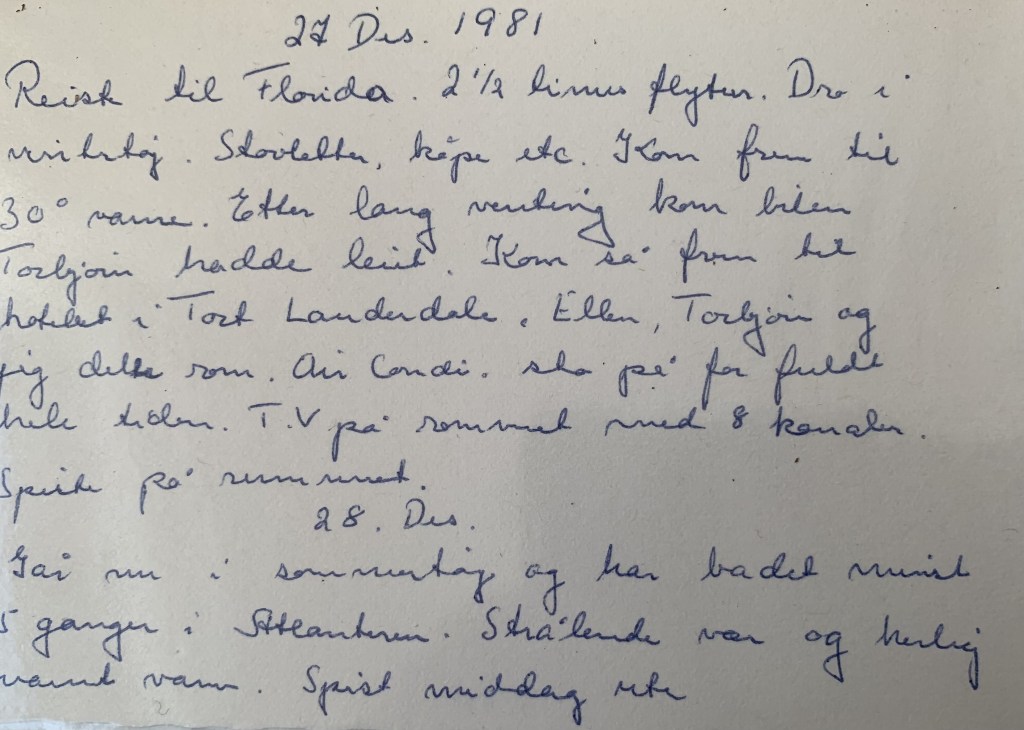 27 Des. 1981
Reiste til Florida. 2 1/2 times flytur. Dro i
vintertøj. Støvletter, kåpe etc. Kom frem til
30° varme. Etter lang venting kom bilen
Torbjørn hadde leiet. Kom så frem til
hotellet i Fort Lauderdale. Ellen, Torbjørn og
jeg delte rom. Air Condi. sto på for fulde
hele tiden. T.V på rommet med 8 kanaler.
Spiste på rummet.
28. Des.
Går nu i sommertøj og har badet minst
5 ganger i Atlanteren. Strålende vær og herlig
varmt vann. Spist middag ute